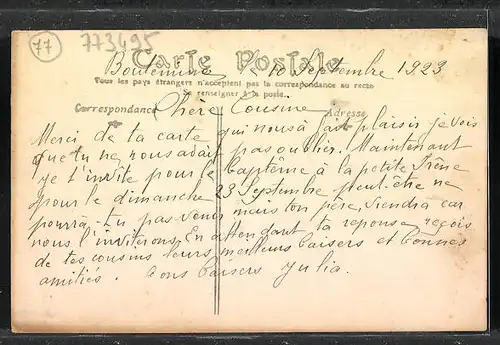 77
773495
Carte Postale
10 Septembre 1923
Tous les pays étrangers n'acceptent pas la correspondance au recto
Se renseigner à la poste.
Correspondance
Adresse
Chère Cousine
Merci de ta carte qui nous à fait plaisir je vois
que tu ne nous avait pas oublier. Maintenant
je t'invite pour le Baptême à la petite Irène
pour le dimanche 23 Septembre peut-être ne
pourra-tu pas venir mais ton père viendra car
nous l'invitirons. En attendant ta reponse reçois
de tes cousins leurs meilleurs baisers et bonnes
amitiés. Bons baisers Julia.